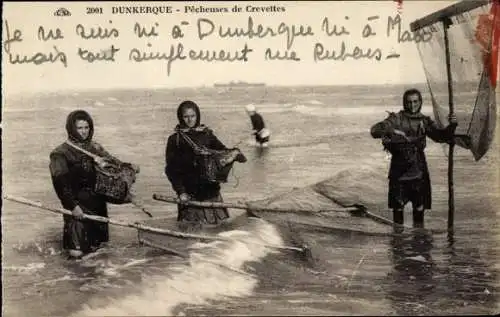 2001 DUNKERQUE - Pêcheuses de Crevettes
Je ne suis ni à Dunkerque ni à
mais tout simplement rue Roubaix -